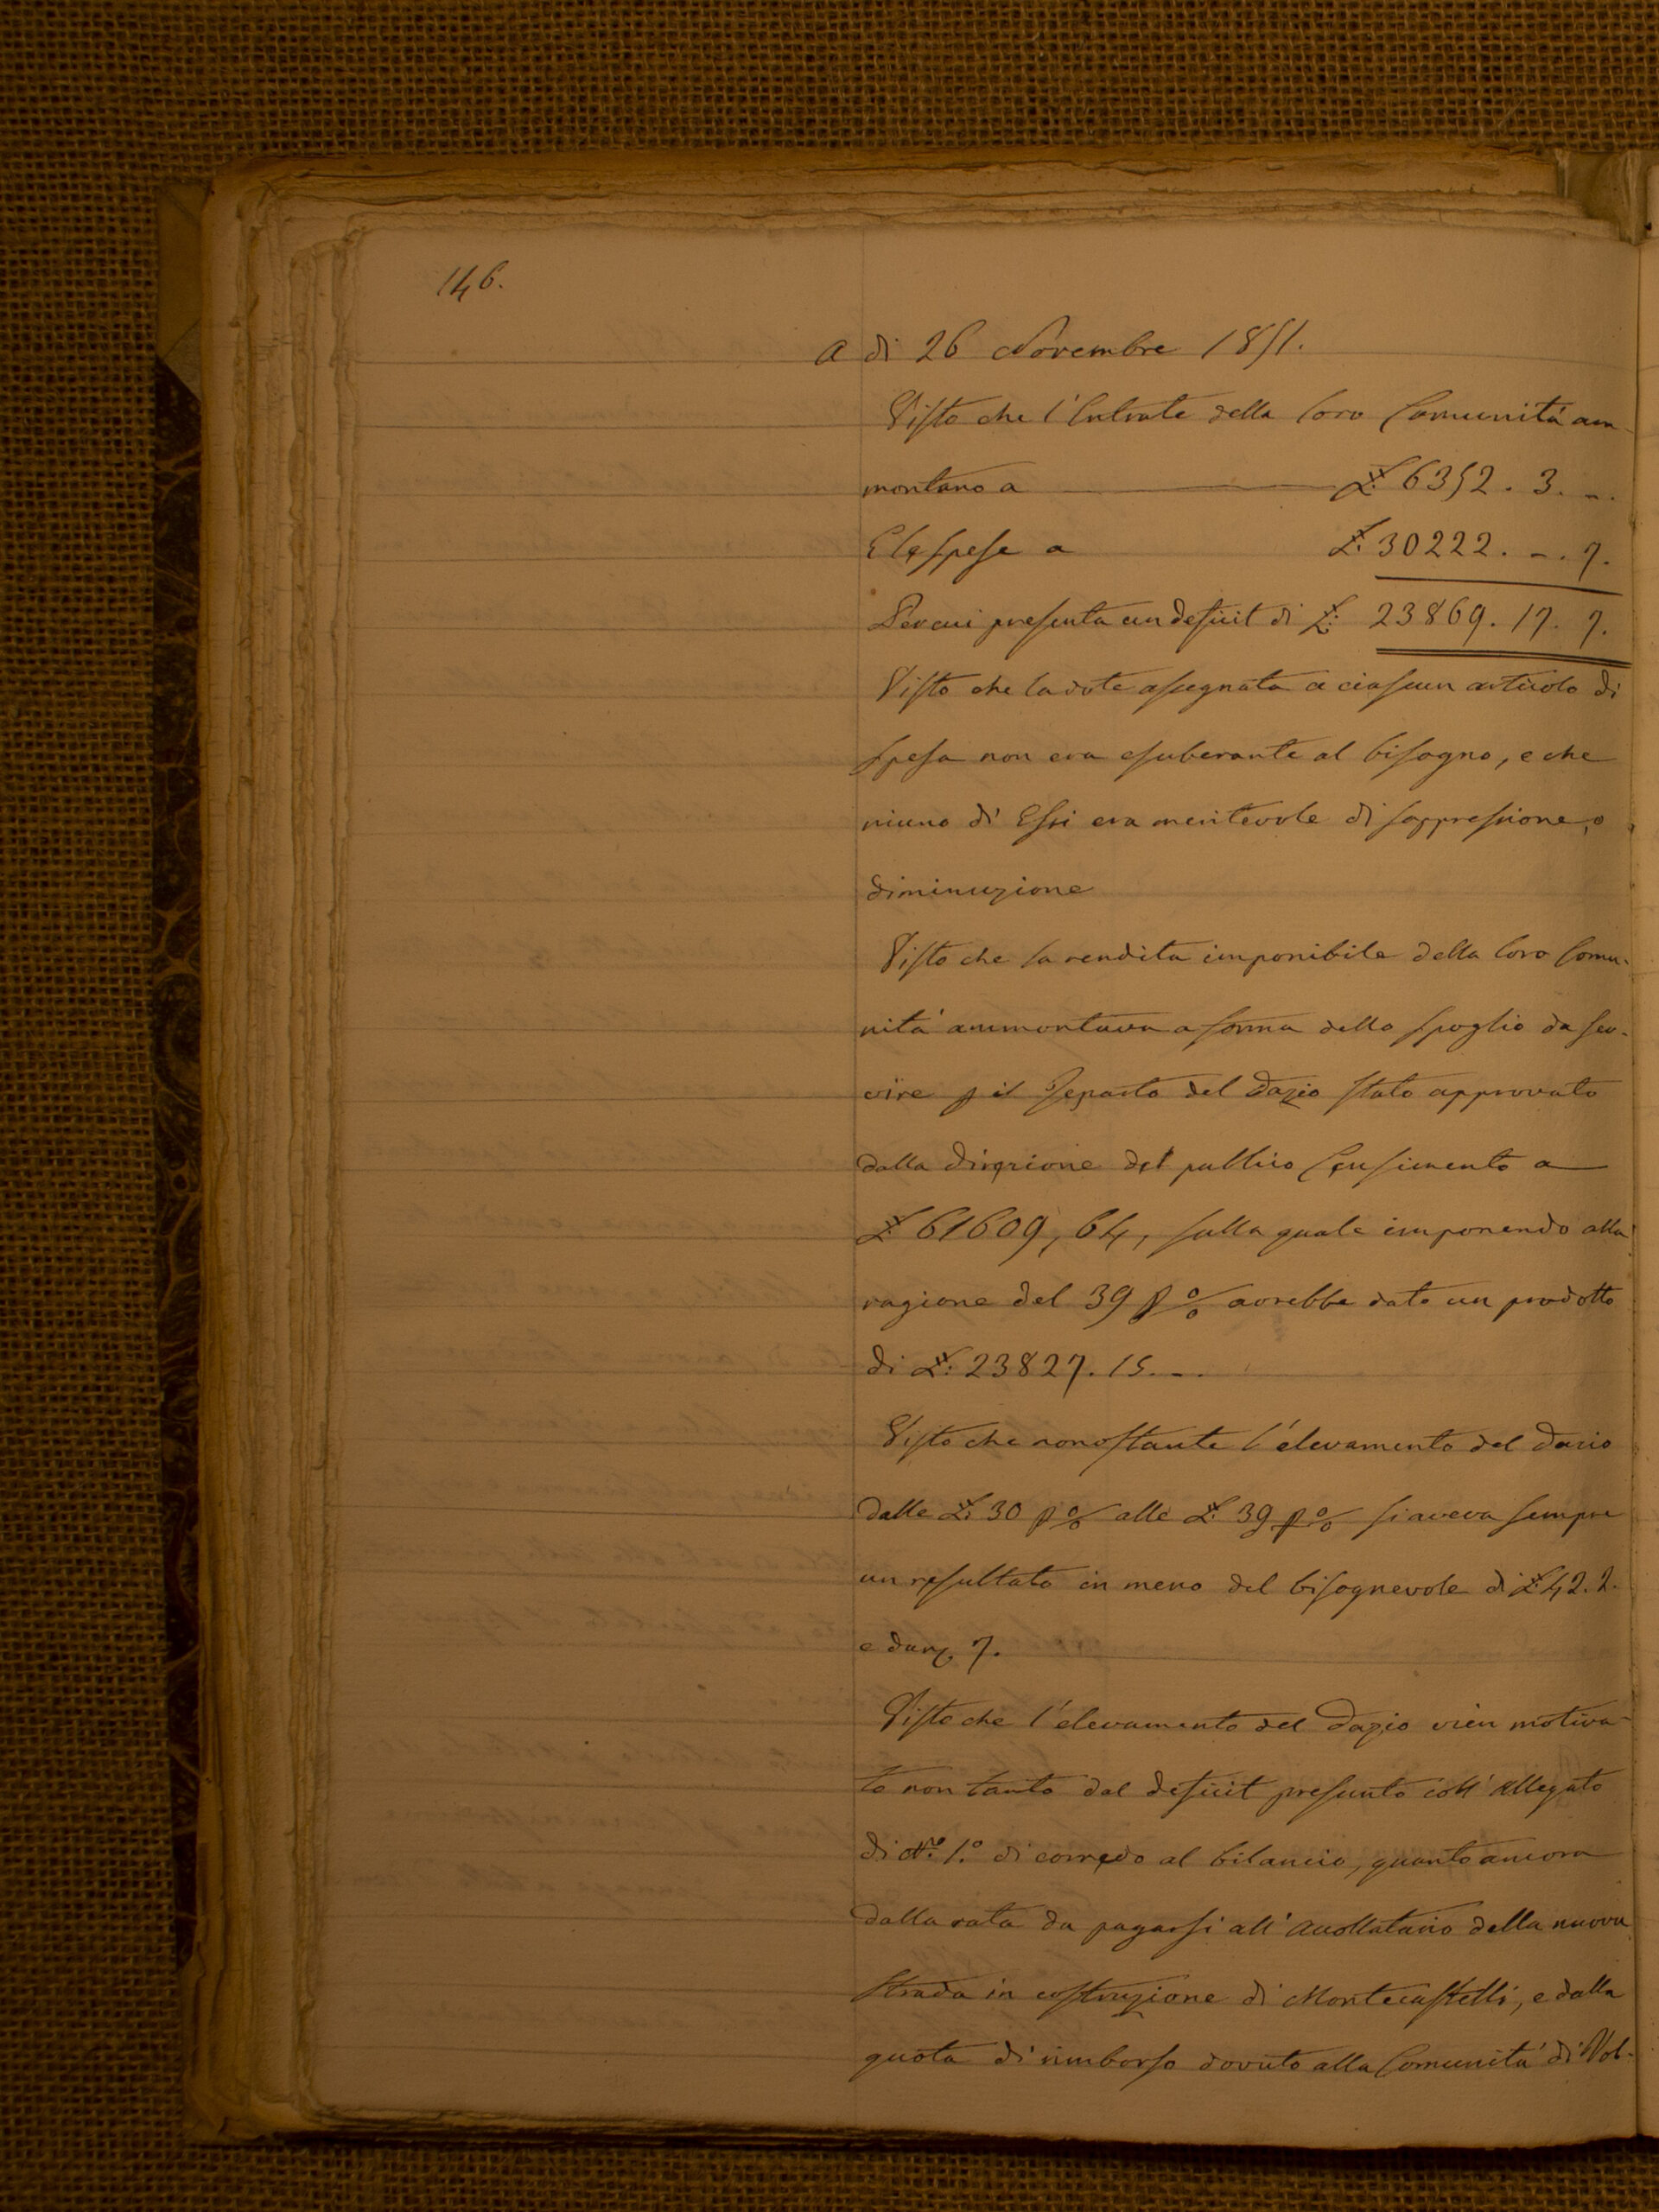 146.
A di 26 Novembre 1851.
Visto che l'Entrate della loro Comunità am-
montano a ——— £ 6352. 3. -.
E le spese a £. 30222. -. 7.
Per cui presenta un deficit di £. 23869. 17. 7.
Visto che la dote assegnata a ciascun articolo di
spesa non era esuberante al bisogno, e che
niuno di Essi era meritevole di soppressione, o
diminuzione
Visto che la rendita imponibile della loro Comu-
nità ammontava a forma dello spoglio da ser-
vire p il Reparto del Dazio stato approvato
dalla direzione del pubblico Censimento a
£ 61609, 64, sulla quale imponendo alla
ragione del 39 p % avrebbe dato un prodotto
di £. 23827. 15. -.
Visto che nonostante l'elevamento del Dazio
dalle £. 30 p % alle £. 39 p % si aveva sempre
un resultato in meno del bisognevole di £. 42. 2.
e den. 7.
Visto che l'elevamento del Dazio vien motiva-
to non tanto dal deficit presunto coll'allegato
di N.º 1.º di corredo al bilancio, quanto ancora
dalla rata da pagarsi all'Accollatario della nuova
Strada in costruzione di Montecastelli, e dalla
quota di rimborso dovuto alla Comunità di Vol-